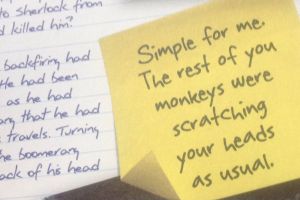 to Sherlock from
killed him?
backfiring had
He had been
as he had
that he had
travels. Turning
he boomerang
ack of his head
Simple for me.
The rest of you
monkeys were
scratching
your heads
as usual.